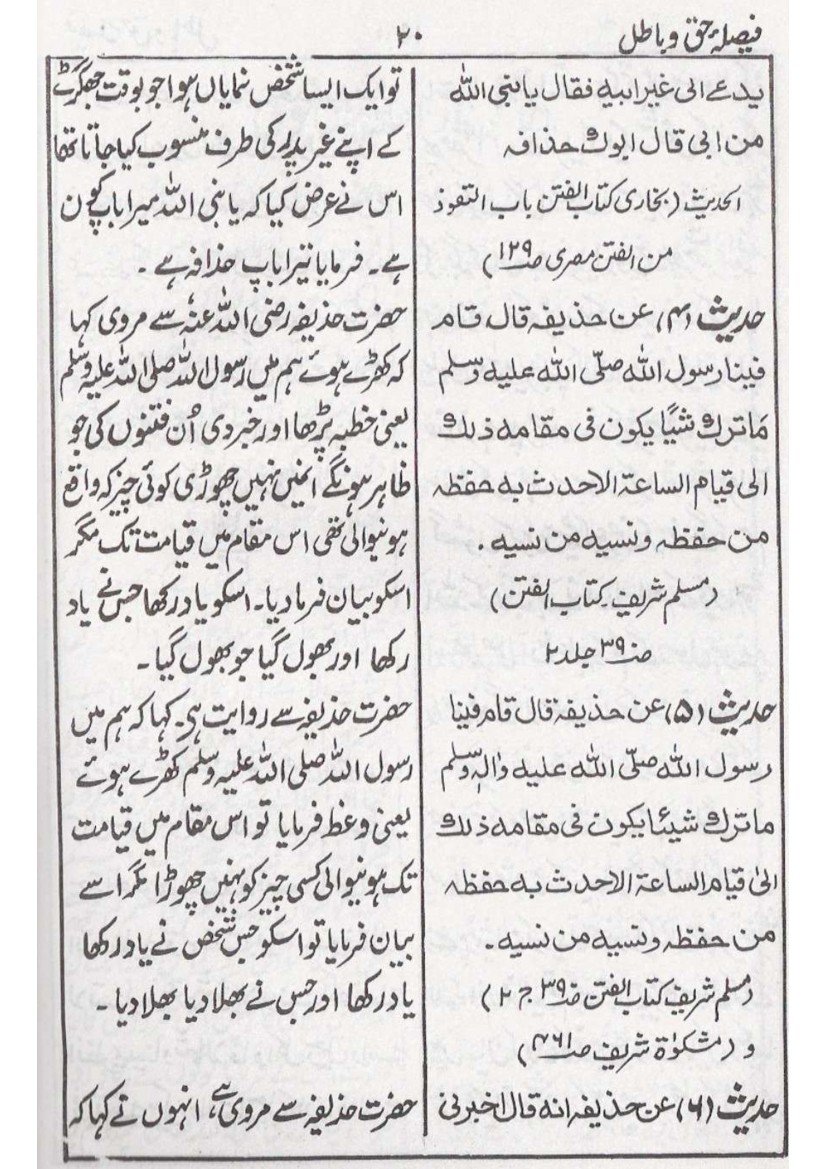 فیصلۂ حق و باطل
۲۰
یدعےٰ الی غیر ابیه فقال یا نبی اللہ
من ابی قال ابوک حذافہ
الحدیث (بخاری کتاب الفتن باب التعوذ
من الفتن مصری صـ۱۲۹)
حدیث (۴) عن حذیفہ قال قام
فینا رسول اللہ صلّی اللہ علیہ وسلم
مَا ترک شیًا یکون فی مقامہ ذلک
الی قیام الساعۃ الاحدث بہ حفظہ
من حفظہ ونسیہ من نسیہ ۔
(مسلم شریف۔ کتاب الفتن)
صـ۳۹۰ جلد ۲
حدیث (۵) عن حذیفہ قال قام فینا
رسول اللہ صلّی اللہ علیہ واٰلہٖ وسلم
ما ترک شیئا یکون فی مقامہ ذلک
الیٰ قیام الساعۃ الاحدث بہ حفظہ
من حفظہ ونسیہ من نسیہ ۔
(مسلم شریف کتاب الفتن صـ۳۹۰ ج ۲)
و (مشکوٰۃ شریف صـ۴۶۱)
حدیث (۶) عن حذیفہ انہ قال اخبرنی
تو ایک ایسا شخص نمایاں ہوا جو بوقت جھگڑے
کے اپنے غیر پدر کی طرف منسوب کیا جاتا تھا
اس نے عرض کیا کہ یا نبی اللہ میرا باپ کون
ہے۔ فرمایا تیرا باپ حذافہ ہے ۔
حضرت حذیفہ رضی اللہ عنہٗ سے مروی کہا
کہ کھڑے ہوئے ہم میں رسول اللہ صلی اللہ علیہ وسلم
یعنی خطبہ پڑھا اور خبر دی اُن فتنوں کی جو
ظاہر ہونگے انمیں نہیں چھوڑی کوئی چیز کہ واقع
ہونیوالی تھی اس مقام میں قیامت تک مگر
اسکو بیان فرمادیا۔ اسکو یاد رکھا جس نے یاد
رکھا اور بھول گیا جو بھول گیا۔
حضرت حذیفہ سے روایت ہی۔ کہا کہ ہم میں
رسول اللہ صلی اللہ علیہ وسلم کھڑے ہوئے
یعنی وعظ فرمایا تو اس مقام میں قیامت
تک ہونیوالی کسی چیز کو نہیں چھوڑا مگر اسے
بیان فرمایا تو اسکو جس شخص نے یاد رکھا
یاد رکھا اور جس نے بھلا دیا بھلا دیا۔
حضرت حذیفہ سے مروی ہے، انہوں نے کہا کہ